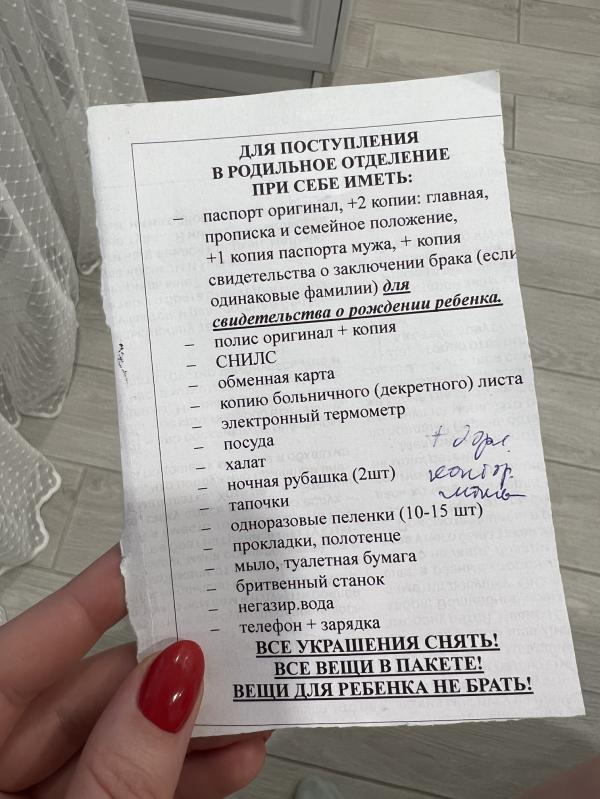 ДЛЯ ПОСТУПЛЕНИЯ
В РОДИЛЬНОЕ ОТДЕЛЕНИЕ
ПРИ СЕБЕ ИМЕТЬ:
– паспорт оригинал, +2 копии: главная,
прописка и семейное положение,
+1 копия паспорта мужа, + копия
свидетельства о заключении брака (если
одинаковые фамилии) для
свидетельства о рождении ребенка.
– полис оригинал + копия
– СНИЛС
– обменная карта
– копию больничного (декретного) листа
– электронный термометр
– посуда
– халат
– ночная рубашка (2шт)
– тапочки
– одноразовые пеленки (10-15 шт)
– прокладки, полотенце
– мыло, туалетная бумага
– бритвенный станок
– негазир.вода
– телефон + зарядка
ВСЕ УКРАШЕНИЯ СНЯТЬ!
ВСЕ ВЕЩИ В ПАКЕТЕ!
ВЕЩИ ДЛЯ РЕБЕНКА НЕ БРАТЬ!